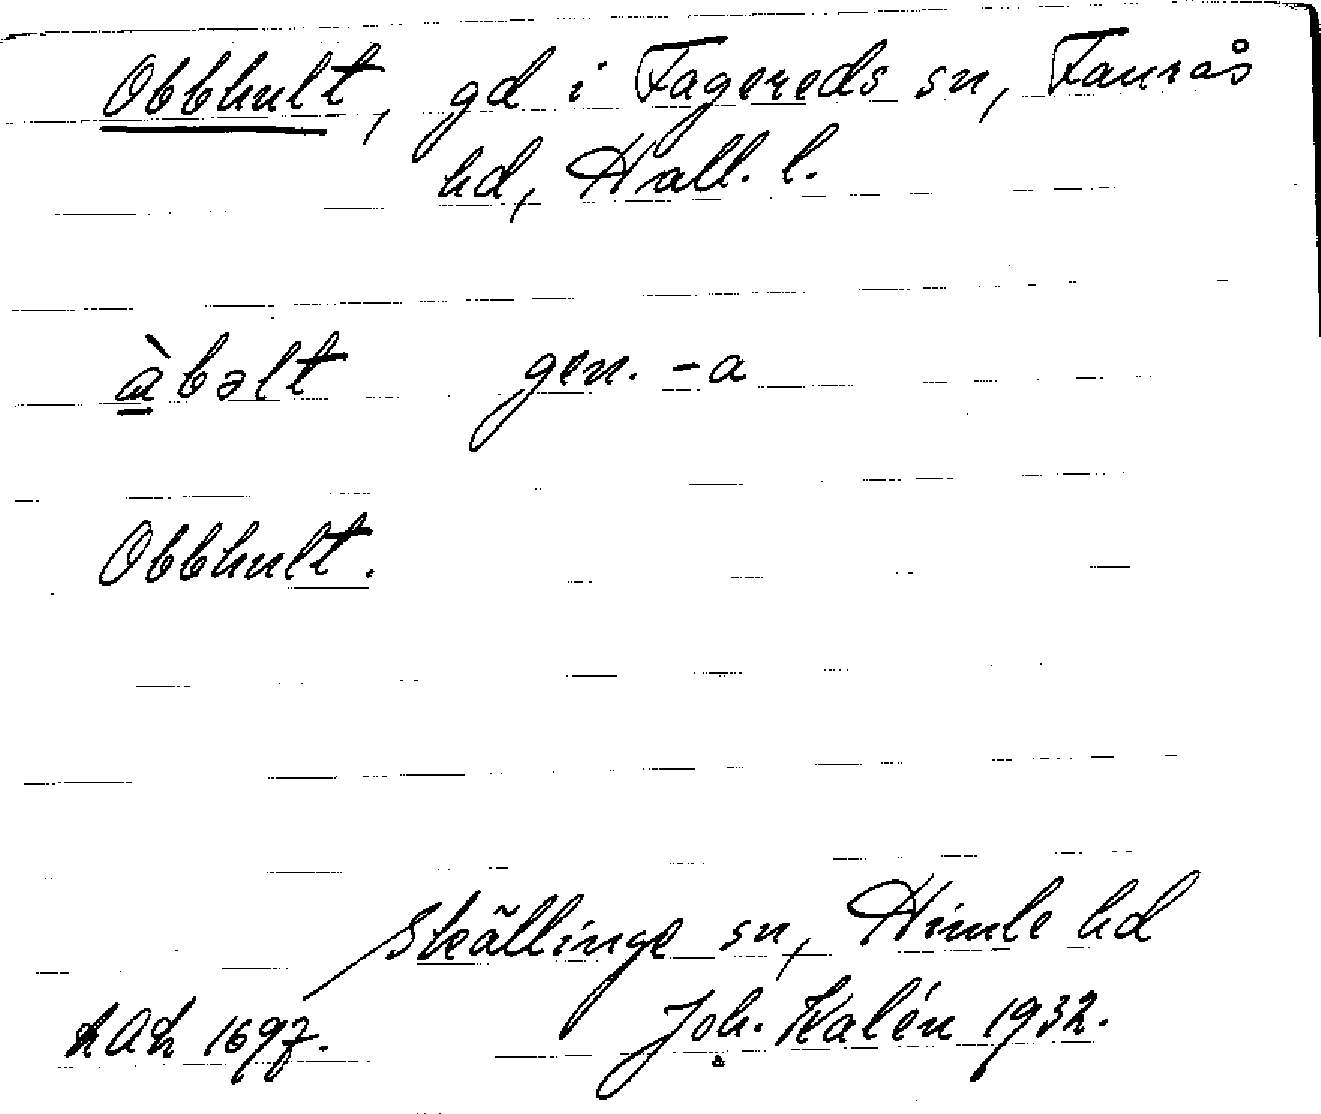 Obbhult, gd i Fagereds sn, Faurås
hd, Hall. l.
à̲bəlt gen. -a
Obbhult.
Skällinge sn, Himle hd
LAL 1697. Joh. Kalén 1932.